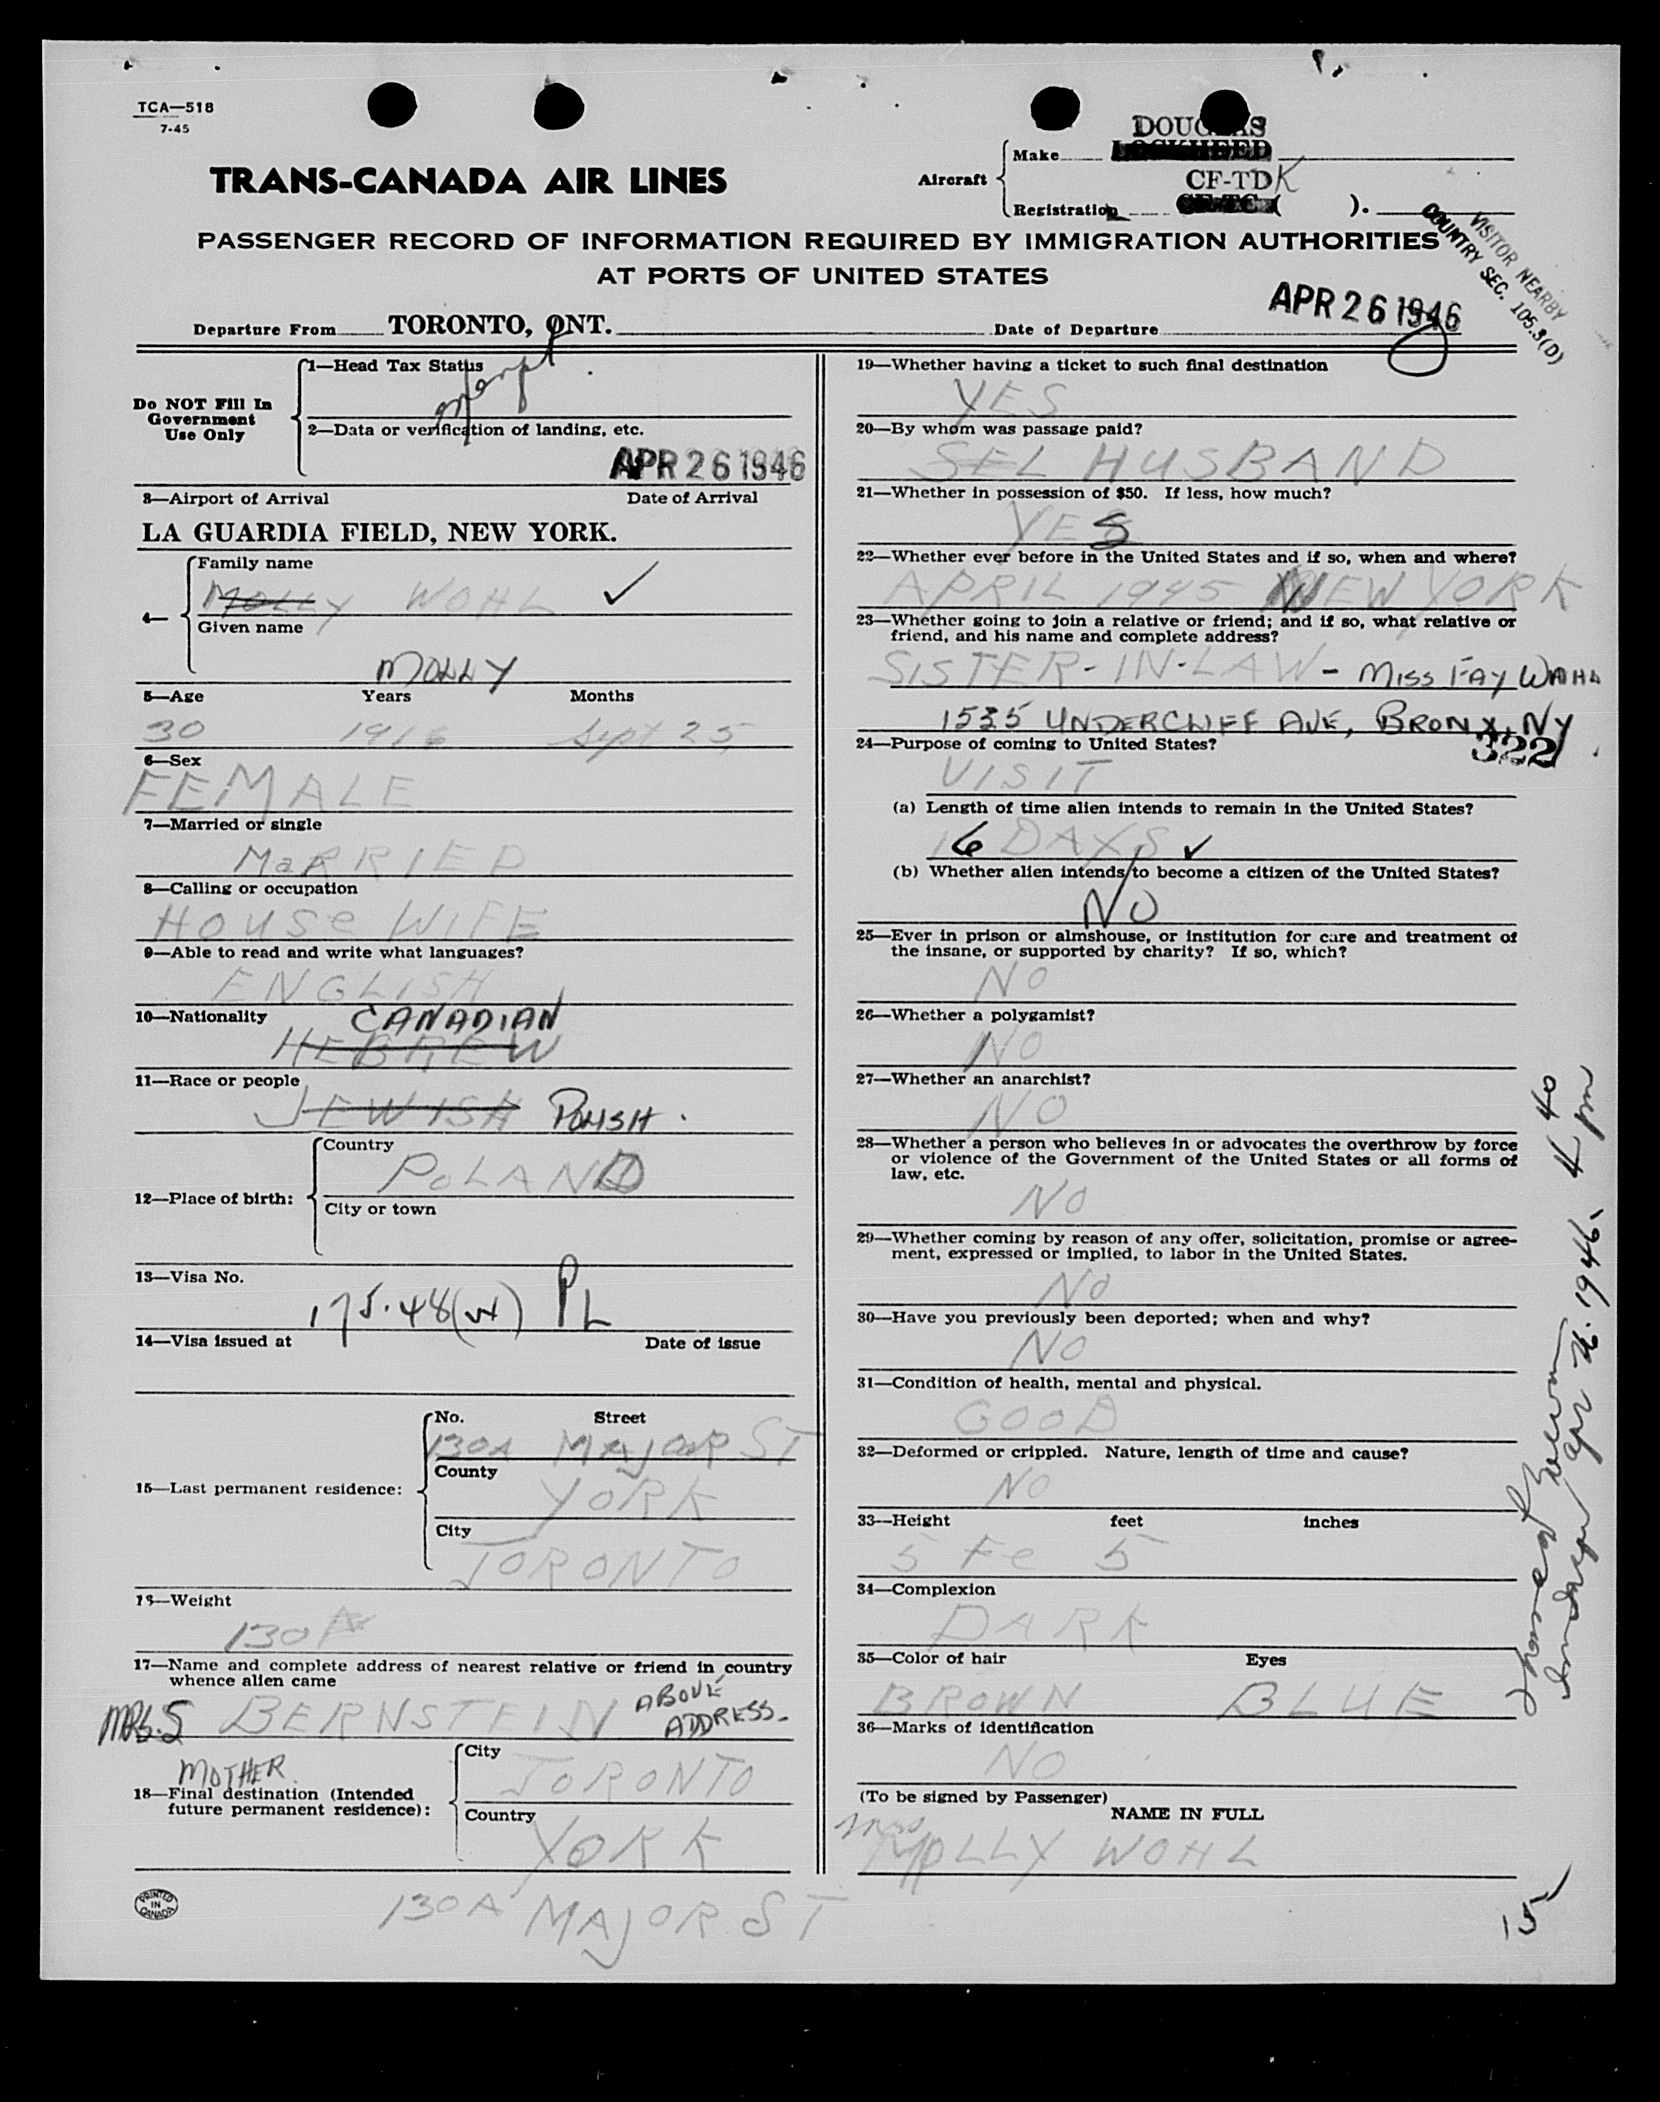 TCA—518
7-45
TRANS-CANADA AIR LINES
Aircraft
Make
DOUGLAS
LOCKHEED
CF-TDK
Registration
CF-TC ( ).
PASSENGER RECORD OF INFORMATION REQUIRED BY IMMIGRATION AUTHORITIES
AT PORTS OF UNITED STATES
VISITOR NEARBY
COUNTRY SEC. 105.3(D)
Departure From TORONTO, ONT. Date of Departure APR 26 1946
Do NOT Fill In
Government
Use Only
1—Head Tax Status
2—Data or verification of landing, etc.
APR 26 1946
3—Airport of Arrival Date of Arrival
LA GUARDIA FIELD, NEW YORK.
4—
Family name
MOLLY WOHL ✓
Given name
MOLLY
5—Age Years Months
30 1916 Sept 25
6—Sex
FEMALE
7—Married or single
MaRRIED
8—Calling or occupation
HOUSe WIFE
9—Able to read and write what languages?
ENGLISH
10—Nationality CANADIAN
HEBREW
11—Race or people
JEWISH POLISH.
12—Place of birth:
Country
PoLAND
City or town
13—Visa No.
175.48(w) PL
14—Visa issued at Date of issue
15—Last permanent residence:
No. Street
130A MAJOR ST
County
YORK
City
TORONTO
16—Weight
130
17—Name and complete address of nearest relative or friend in country
whence alien came
MRS. S BERNSTEIN ABOVE
ADDRESS.
MOTHER
18—Final destination (Intended
future permanent residence):
City
TORONTO
Country
YORK
130A MAJOR ST
PRINTED
IN
CANADA
19—Whether having a ticket to such final destination
YES
20—By whom was passage paid?
SEL HUSBAND
21—Whether in possession of $50. If less, how much?
YES
22—Whether ever before in the United States and if so, when and where?
APRIL 1945 NEW YORK
23—Whether going to join a relative or friend; and if so, what relative or
friend, and his name and complete address?
SISTER-IN-LAW - MISS FAY WAHL
1535 UNDERCLIFF AVE, BRONX, NY
322
24—Purpose of coming to United States?
VISIT
(a) Length of time alien intends to remain in the United States?
16 DAYS ✓
(b) Whether alien intends to become a citizen of the United States?
NO
25—Ever in prison or almshouse, or institution for care and treatment of
the insane, or supported by charity? If so, which?
NO
26—Whether a polygamist?
NO
27—Whether an anarchist?
NO
28—Whether a person who believes in or advocates the overthrow by force
or violence of the Government of the United States or all forms of
law, etc.
NO
29—Whether coming by reason of any offer, solicitation, promise or agree-
ment, expressed or implied, to labor in the United States.
NO
30—Have you previously been deported; when and why?
NO
31—Condition of health, mental and physical.
GOOD
32—Deformed or crippled. Nature, length of time and cause?
NO
33—Height feet inches
5 Fe 5
34—Complexion
DARK
35—Color of hair Eyes
BROWN BLUE
36—Marks of identification
NO
(To be signed by Passenger)
NAME IN FULL
Mrs MOLLY WOHL
Apr 26. 1946. 4 40 pm
15